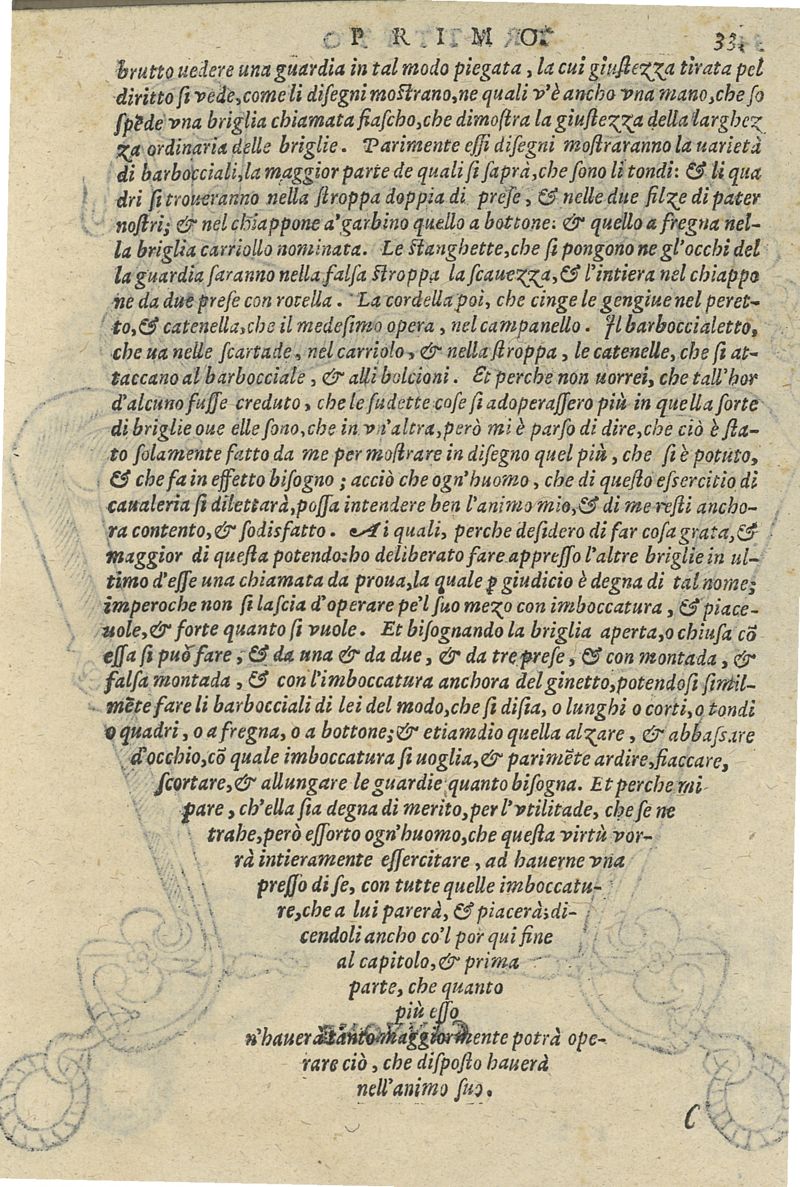 PRIMO. 33.
brutto uedere una guardia in tal modo piegata, la cui giuſtezza tirata pel
diritto ſi vede, come li diſegni moſtrano, ne quali v'è ancho vna mano, che ſo
ſpẽde vna briglia chiamata fiaſcho, che dimoſtra la giuſtezza della larghez
za ordinaria delle briglie. Parimente eſſi diſegni moſtraranno la uarietà
di barbocciali, la maggior parte de quali ſi ſaprà, che ſono li tondi: & li qua
dri ſi troueranno nella ſtroppa doppia di preſe, & nelle due filze di pater
noſtri; & nel chiappone a'garbino quello a bottone: & quello a fregna nel-
la briglia carriollo nominata. Le ſtanghette, che ſi pongono ne gl'occhi del
la guardia ſaranno nella falſa ſtroppa la ſcauezza, & l'intiera nel chiappo
ne da due preſe con rotella. La cordella poi, che cinge le gengiue nel peret-
to, & catenella, che il medeſimo opera, nel campanello. Il barboccialetto,
che ua nelle ſcartade, nel carriolo, & nella ſtroppa, le catenelle, che ſi at-
taccano al barbocciale, & alli bolcioni. Et perche non uorrei, che tall'hor
d'alcuno fuſſe creduto, che le ſudette coſe ſi adoperaſſero più in quella ſorte
di briglie oue elle ſono, che in vn'altra, però mi è parſo di dire, che ciò è ſta-
to ſolamente fatto da me per moſtrare in diſegno quel più, che ſi è potuto,
& che fa in effetto biſogno; acciò che ogn'huomo, che di queſto eſſercitio di
caualeria ſi dilettarà, poſſa intendere ben l'animo mio, & di me reſti ancho-
ra contento, & ſodisfatto. Ai quali, perche deſidero di far coſa grata, &
maggior di queſta potendo: ho deliberato fare appreſſo l'altre briglie in ul-
timo d'eſſe una chiamata da proua, la quale ꝑ giudicio è degna di tal nome;
imperoche non ſi laſcia d'operare pe'l ſuo mezo con imboccatura, & piace-
uole, & forte quanto ſi vuole. Et biſognando la briglia aperta, o chiuſa cõ
eſſa ſi può fare, & da una & da due, & da tre preſe, & con montada, &
falſa montada, & con l'imboccatura anchora del ginetto, potendoſi ſimil-
mẽte fare li barbocciali di lei del modo, che ſi diſia, o lunghi o corti, o tondi
o quadri, o a fregna, o a bottone; & etiamdio quella alzare, & abbaſſare
d'occhio, cõ quale imboccatura ſi uoglia, & parimẽte ardire, fiaccare,
ſcortare, & allungare le guardie quanto biſogna. Et perche mi
pare, ch'ella ſia degna di merito, per l'vtilitade, che ſe ne
trahe, però eſſorto ogn'huomo, che queſta virtù vor-
rà intieramente eſſercitare, ad hauerne vna
preſſo di ſe, con tutte quelle imboccatu-
re, che a lui parerà, & piacerà; di-
cendoli ancho co'l por qui fine
al capitolo, & prima
parte, che quanto
più eſſo
n'hauerà tanto maggiormente potrà ope-
rare ciò, che diſpoſto hauerà
nell'animo ſuo.
C